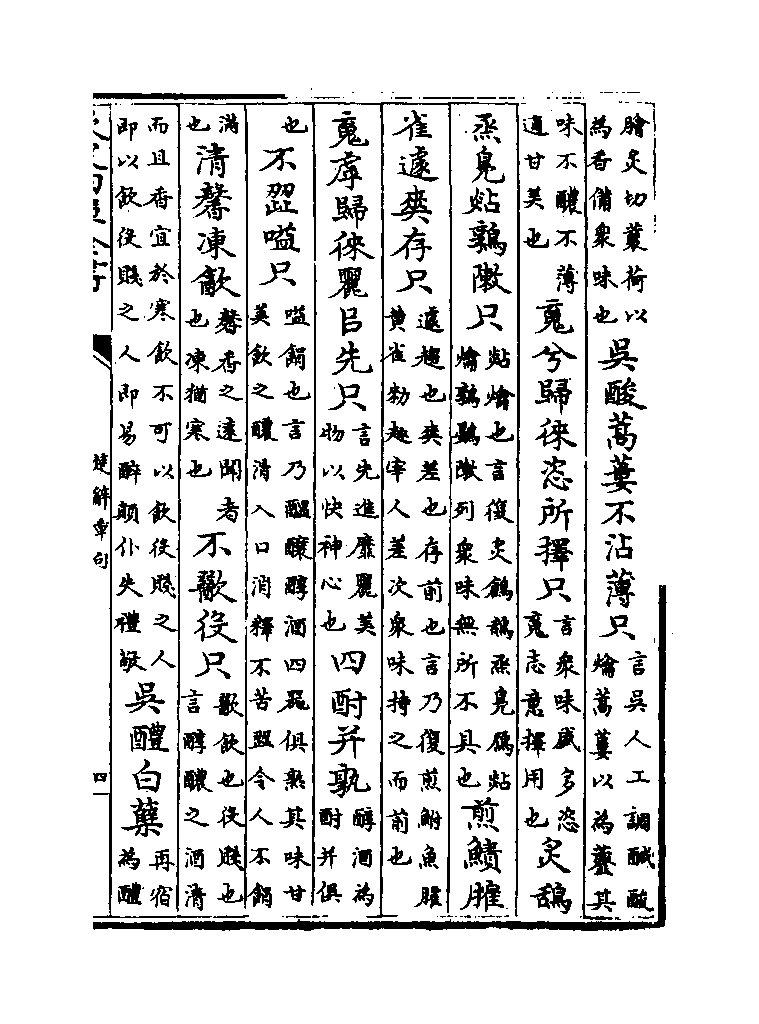 膾炙切蘘荷以為香備衆味也吳酸蒿蔞不沾薄只言吳人工調醎酸爚蒿蔞以為虀其
味不醲不薄適甘美也䰟兮歸徠恣所擇只言衆味盛多恣䰟志意擇用也炙鴰
烝鳧煔鶉敶只煔爚也言復炙鶬鴰烝鳧鴈煔爚鶉鷃敶列衆味無所不具也煎鰿臛
雀遽爽存只遽趣也爽差也存前也言乃復煎鮒魚臛黄雀勑趣宰人差次衆味持之而前也
䰟虖歸徠麗㠯先只言先進靡麗美物以快神心也四酎并孰醇酒為酎并俱
也不歰嗌只嗌餲也言乃醖釀醇酒四器俱熟其味甘美飲之醲滑入口消釋不苦歰令人不餲
滿也清馨凍㱃馨香之遠聞者也凍猶寒也不歠役只歠飲也役賤也言醇醲之酒清
而且香宜於寒飲不可以飲役賤之人即以飲役賤之人即易醉顛仆失禮敬吳醴白糵再宿為醴
楚辭章句
四